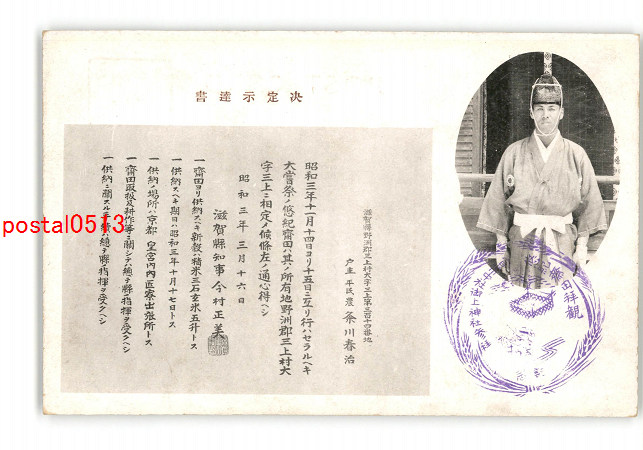 書達示定決
滋賀縣野洲郡三上村大字三上第三百十四番地
戸主 平民 農 粂川春治
昭和三年十一月十四日ヨリ十五日ニ亙リ行ハセラルヘキ
大嘗祭ノ悠紀齋田ハ其ノ所有地野洲郡三上村大
字三上ニ相定メ候條左ノ通心得ヘシ
昭和三年三月十六日
滋賀縣知事 今村正美
一 齋田ヨリ供納スヘキ新穀ハ精米三石玄米五升トス
一 供納スヘキ期日ハ昭和三年十月十七日トス
一 供納ノ場所ハ京都皇宮内大嘗寮出張所トス
一 齋田取扱及耕作等ニ關シテハ總テ縣ノ指揮ヲ受クヘシ
一 供納ニ關スル手續ハ總テ縣ノ指揮ヲ受クヘシ
postal0573
齋田拝観
御上神社参拝